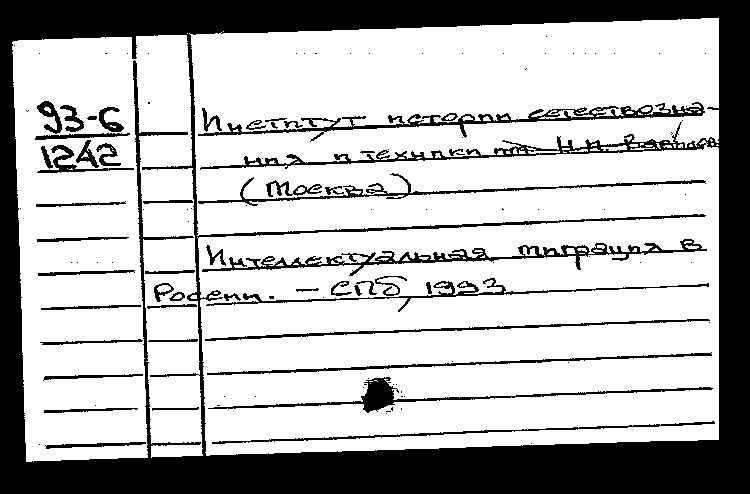 93-6
1242
Институт истории естествозна-
ния и техники им. Н.И. Вавилова
(Москва)
Интеллектуальная миграция в
России. — СПб, 1993